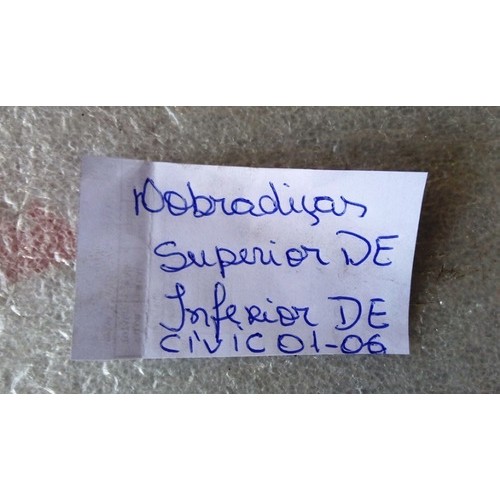 Dobradiças
Superior DE
Inferior DE
CIVIC 01-06